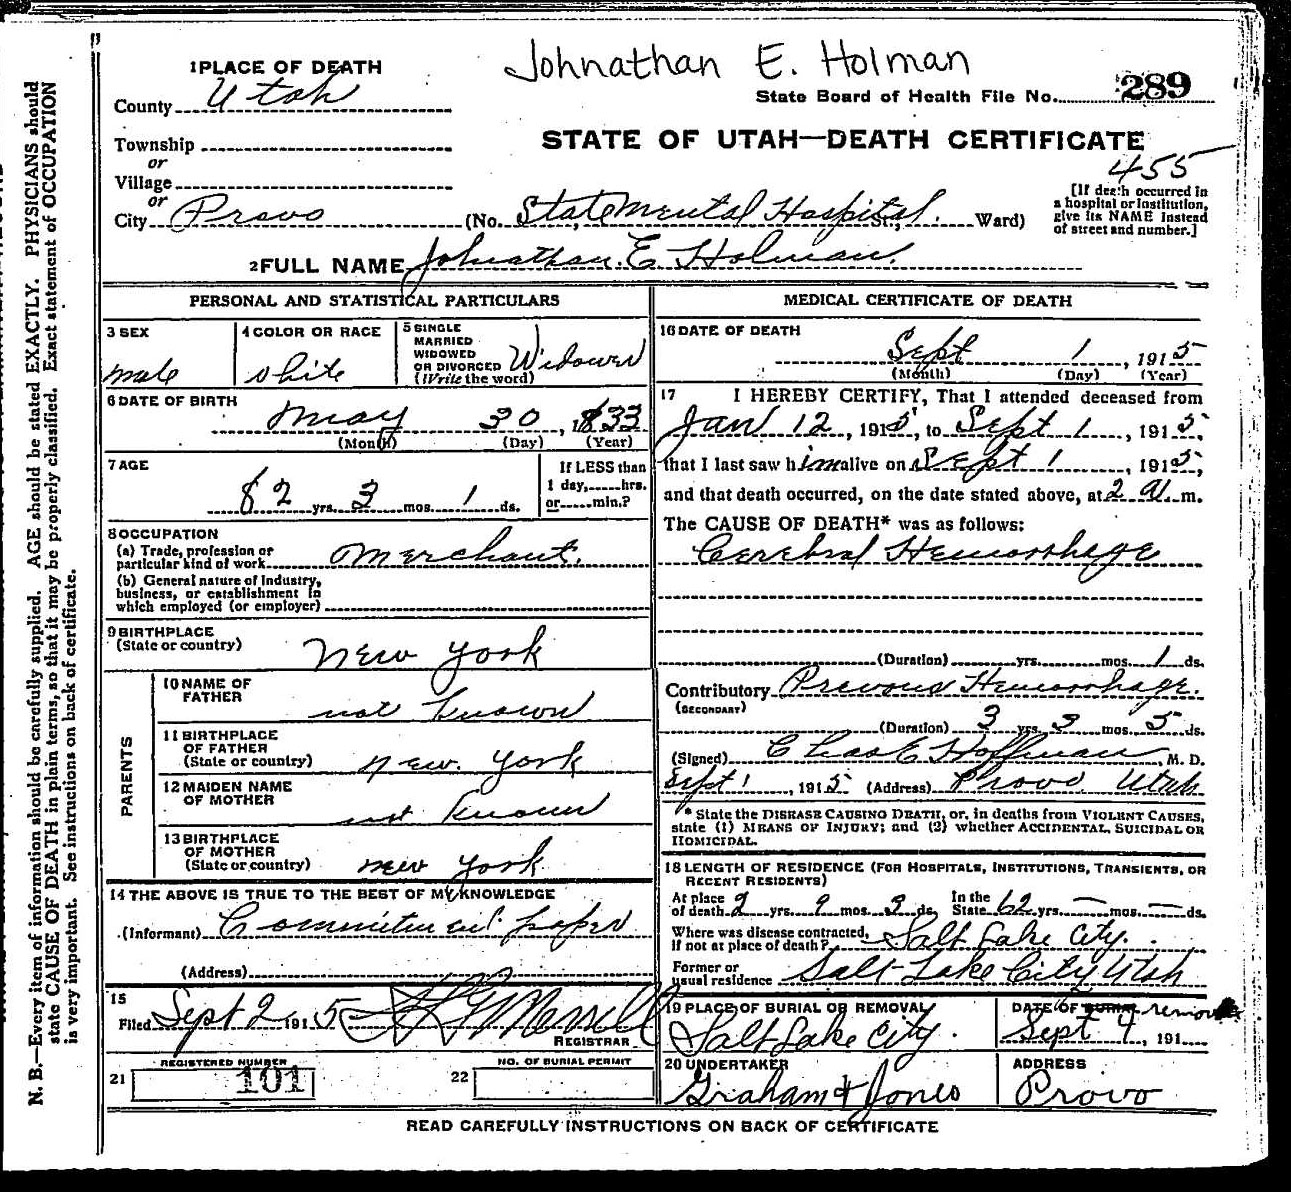 Johnathan E. Holman
1 PLACE OF DEATH
County Utah
State Board of Health File No. 289
STATE OF UTAH—DEATH CERTIFICATE
455
Township
or
Village
or
City Provo (No. State Mental Hospital St., Ward)
[If death occurred in
a hospital or institution,
give its NAME instead
of street and number.]
2 FULL NAME Johnathan E Holman.
PERSONAL AND STATISTICAL PARTICULARS
3 SEX
male
4 COLOR OR RACE
white
5 SINGLE
MARRIED
WIDOWED
OR DIVORCED
(Write the word)
Widower
6 DATE OF BIRTH
May 30, 1833
(Month) (Day) (Year)
7 AGE
82 yrs. 3 mos. 1 ds.
If LESS than
1 day, hrs.
or min.?
8 OCCUPATION
(a) Trade, profession or
particular kind of work Merchant.
(b) General nature of Industry,
business, or establishment in
which employed (or employer)
9 BIRTHPLACE
(State or country) New York
PARENTS
10 NAME OF
FATHER not known
11 BIRTHPLACE
OF FATHER
(State or country) New. York
12 MAIDEN NAME
OF MOTHER not known
13 BIRTHPLACE
OF MOTHER
(State or country) New York
14 THE ABOVE IS TRUE TO THE BEST OF MY KNOWLEDGE
(Informant)
(Address)
15
Filed Sept 2 1915 Merrill
REGISTRAR
REGISTERED NUMBER
21 101
NO. OF BURIAL PERMIT
22
MEDICAL CERTIFICATE OF DEATH
16 DATE OF DEATH
Sept 1, 1915
(Month) (Day) (Year)
17 I HEREBY CERTIFY, That I attended deceased from
Jan 12, 1915, to Sept 1, 1915,
that I last saw him alive on Sept 1, 1915,
and that death occurred, on the date stated above, at 2 a. m.
The CAUSE OF DEATH* was as follows:
Cerebral Hemorrhage
(Duration) yrs. mos. 1 ds.
Contributory Previous Hemorrhage.
(SECONDARY)
(Duration) 3 yrs. 3 mos. 5 ds.
(Signed) Chas E Hoffman, M. D.
Sept 1, 1915 (Address) Provo Utah
* State the DISEASE CAUSING DEATH, or, in deaths from VIOLENT CAUSES,
state (1) MEANS OF INJURY; and (2) whether ACCIDENTAL, SUICIDAL OR
HOMICIDAL.
18 LENGTH OF RESIDENCE (FOR HOSPITALS, INSTITUTIONS, TRANSIENTS, OR
RECENT RESIDENTS)
At place
of death 2 yrs. 9 mos. 3 ds. In the
State 62 yrs. — mos. — ds.
Where was disease contracted,
if not at place of death? Salt Lake City.
Former or
usual residence Salt Lake City Utah
19 PLACE OF BURIAL OR REMOVAL
Salt Lake City.
DATE OF BURIAL removal
Sept 4, 191
20 UNDERTAKER
Graham & Jones
ADDRESS
Provo
READ CAREFULLY INSTRUCTIONS ON BACK OF CERTIFICATE
N. B.—Every item of information should be carefully supplied. AGE should be stated EXACTLY. PHYSICIANS should
state CAUSE OF DEATH in plain terms, so that it may be properly classified. Exact statement of OCCUPATION
is very important. See instructions on back of certificate.